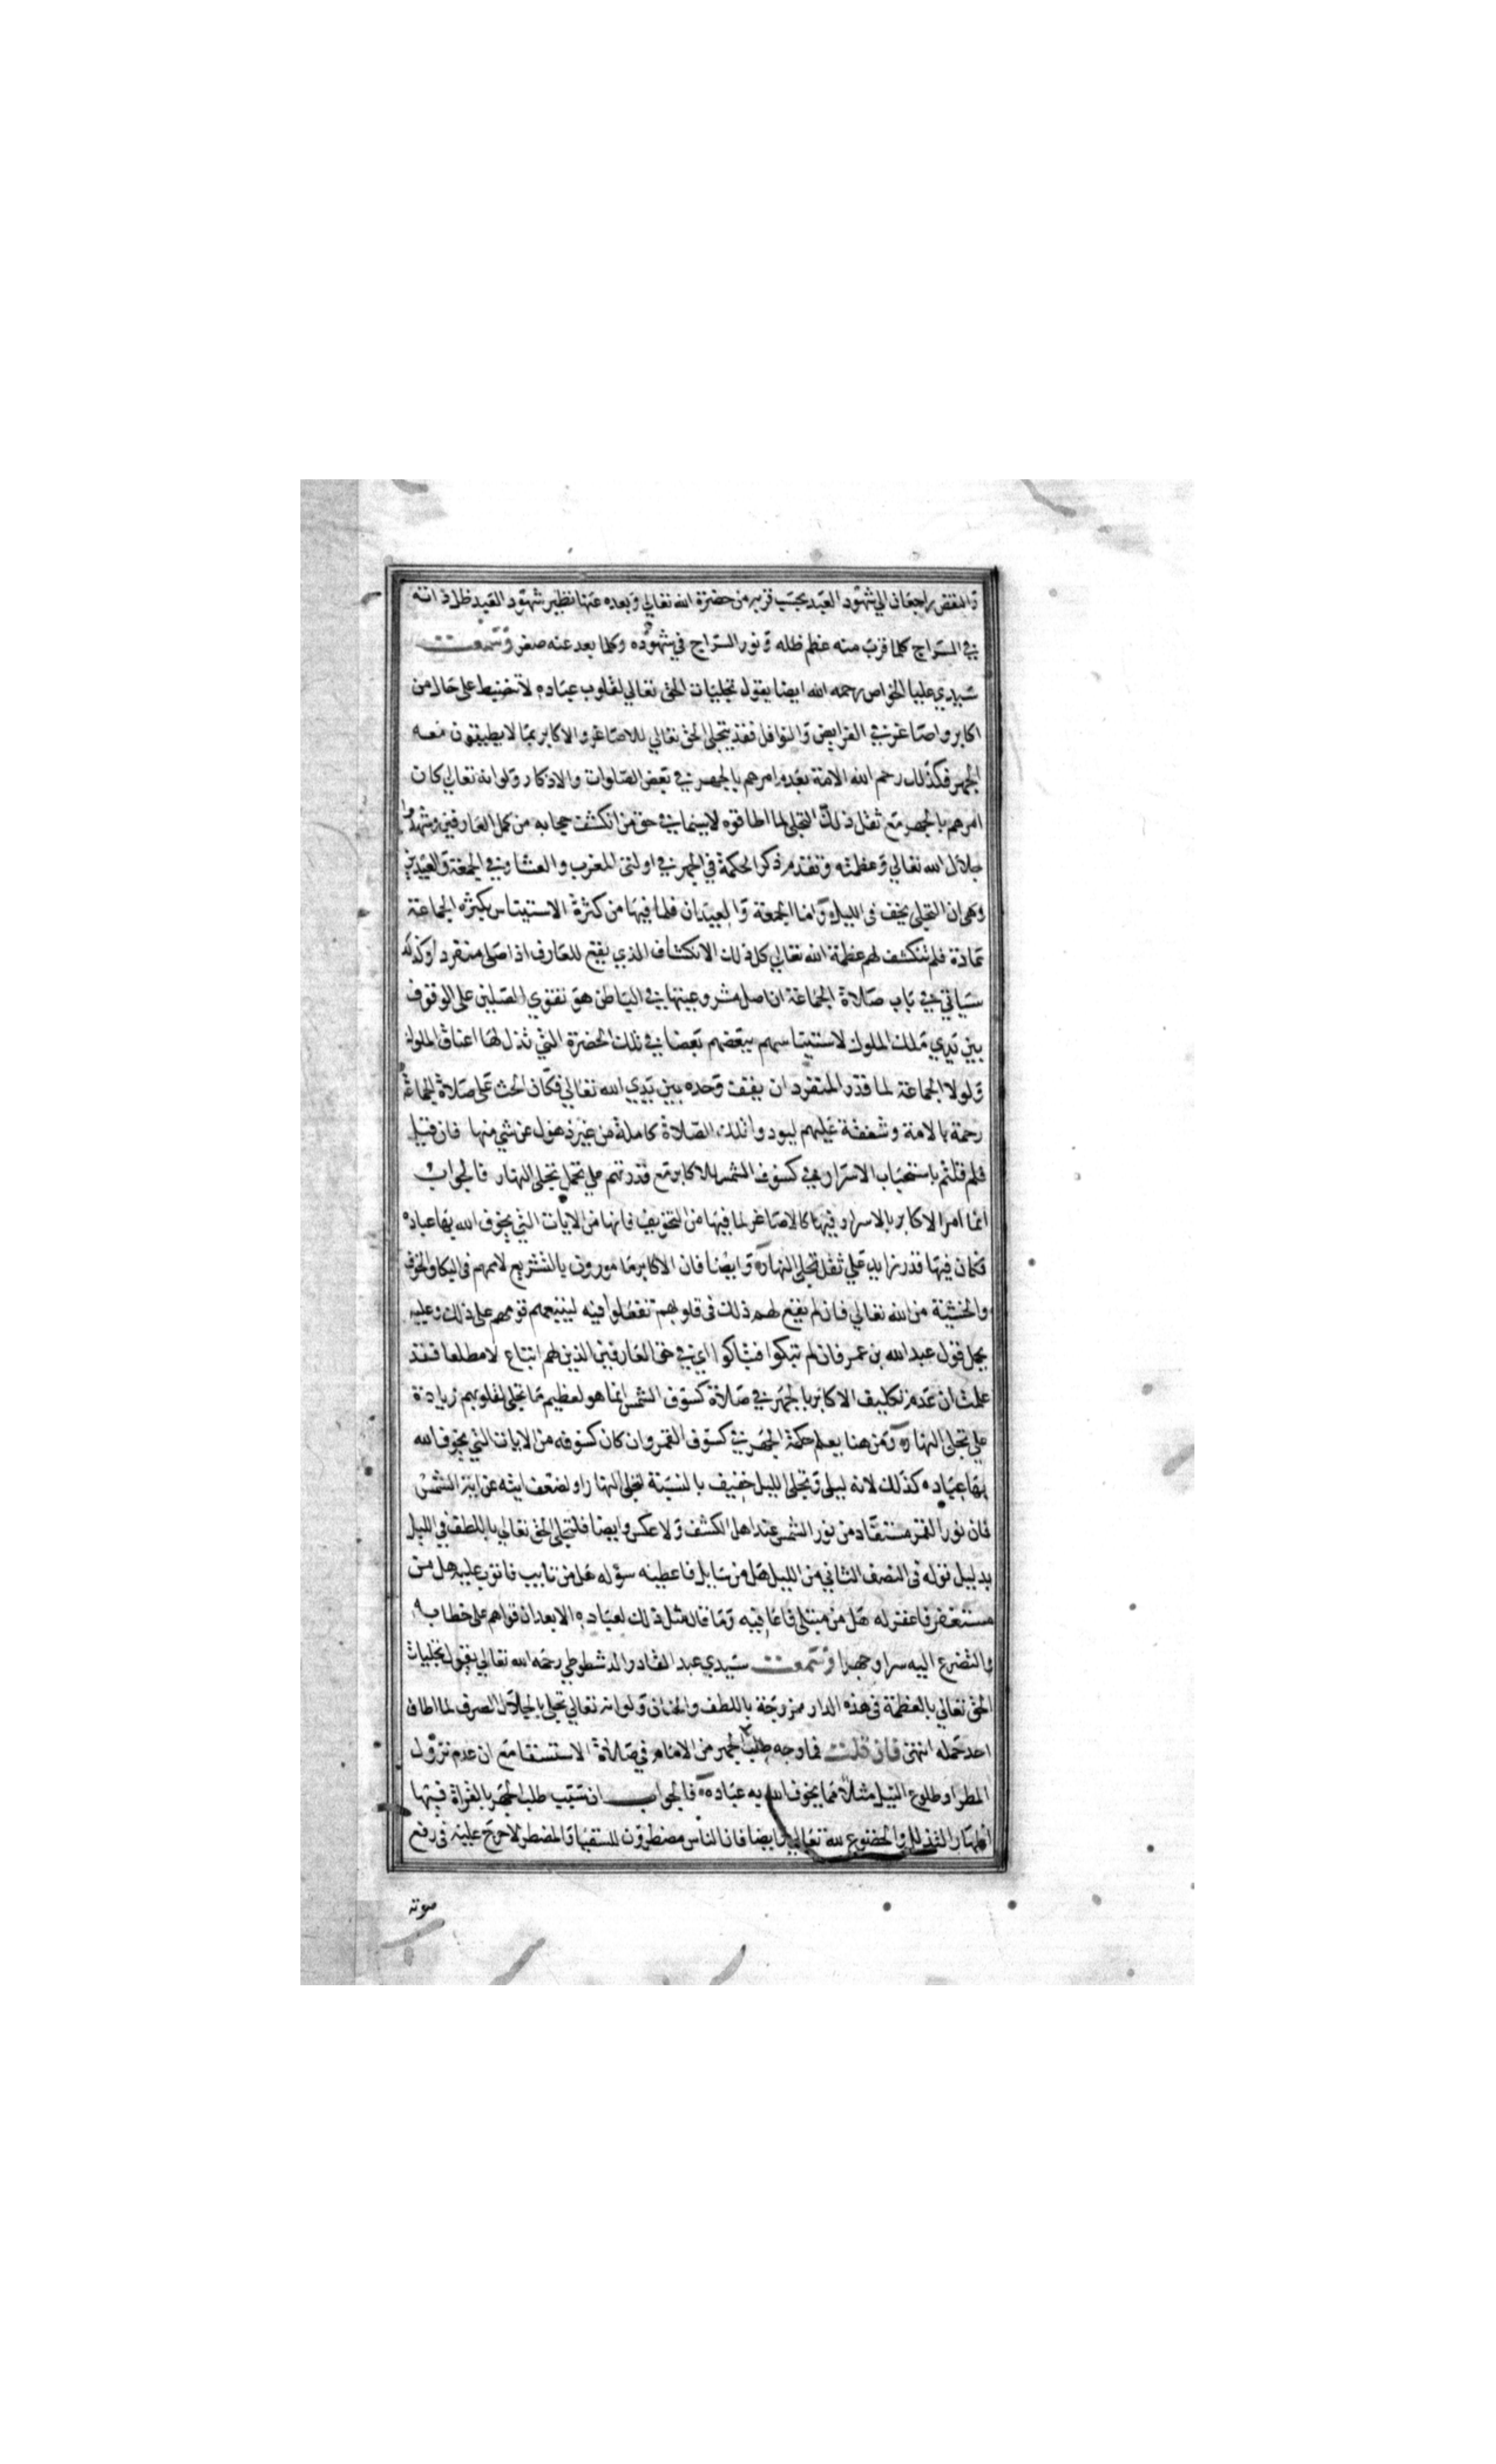 والنقص راجعان الي شهود العبد بحسب قربه من حضرة الله تعالي وبعده عنها نظير شهود العبد ظل ذاته
في السراج كلما قرب منه عظم ظله ونور السراج في شهوده وكلما بعد عنه صغر وسمعت
سيدي عليا الخواص رحمه الله ايضا يقول تجليات الحق تعالي لقلوب عباده لا تنضبط على حال من
اكابر واصاغر في الفرايض والنوافل فقد يتجلى الحق تعالي للاصاغر والاكابر بما لا يطيقون معه
الجهر فكذلك رحم الله الامة بعدم امرهم بالجهر في بعض الصلوات والاذكار ولو انه تعالي كان
امرهم بالجهر مع ثقل ذلك التجلى لما اطاقوه لاسيما في حق من انكشف حجابه من كمل العارفين وشهدوا
جلال الله تعالي وعظمته وتقدم ذكر الحكمة في الجهر في اولتى المغرب والعشا وفي الجمعة والعيدين
وهي ان التجلى يخف في الليل واما الجمعة والعيدان فلما فيها من كثرة الاستيناس بكثرة الجماعة
عادة فلم تنكشف لهم عظمة الله تعالي كل ذلك الانكشاف الذي يقع للعارف اذا صلى منفردا وكذلك
سياتي في باب صلاة الجماعة ان اصل مشروعيتها في الباطن هو تقوي المصلين على الوقوف
بين يدي ملك الملوك لاستيناسهم ببعضهم بعضا في تلك الحضرة التي تذل لها اعناق الملوك
ولولا الجماعة لما قدر المنفرد ان يقف وحده بين يدي الله تعالي فكان الحث على صلاة الجماعة
رحمة بالامة وشفقة عليهم ليودوا تلك الصلاة كاملة من غير ذهول عن شي منها فان قيل
فلم قلتم باستحباب الاسرار في كسوف الشمس للاكابر مع قدرتهم علي تحمل تجلى النهار فالجواب
انما امر الاكابر بالاسرار فيها كالاصاغر لما فيها من التخويف فانها من الايات التي يخوف الله بها عباده
فكان فيها قدر زايد علي ثقل تجلى النهار وايضا فان الاكابر مامورون بالتشريع لاممهم في البكا والخوف
والخشية من الله تعالي فان لم يقع لهم ذلك في قلوبهم تفعلوا فيه ليتبعهم قومهم على ذلك وعليه
يحمل قول عبد الله بن عمر فان لم تبكوا فتباكوا اي في حق العارفين الذين لهم اتباع لا مطلقا فقد
علمت ان عدم تكليف الاكابر بالجهر في صلاة كسوف الشمس انما هو لعظيم ما تجلى لقلوبهم زيادة
علي تجلى النهار ومن هنا يعلم حكمة الجهر في كسوف القمر وان كان كسوفه من الايات التي يخوف الله
بها عباده كذلك لانه ليلى وتجلى الليل خفيف بالنسبة لتجلى النهار او لضعف ايته عن اية الشمس
فان نور القمر مستفاد من نور الشمس عند اهل الكشف ولا عكس وايضا فلتجلى الحق تعالي باللطف في الليل
بدليل قوله في النصف الثاني من الليل هل من سايل فاعطيه سؤله هل من تايب فاتوب عليه هل من
مستغفر فاغفر له هل من مبتلى فاعافيه وما قال مثل ذلك لعباده الا بعد ان قواهم على خطابه
والتضرع اليه سرا وجهرا وسمعت سيدي عبد القادر الدشطوطي رحمه الله تعالي يقول تجليات
الحق تعالي بالعظمة في هذه الدار ممزوجة باللطف والحنان ولو انه تعالي تجلى بالجلال الصرف لما اطاق
احد حمله انتهى فان قلت فما وجه طلب الجهر من الامام في صلاة الاستسقا مع ان عدم نزول
المطر او طلوع النيل مثلا مما يخوف الله به عباده فالجواب ان سبب طلب الجهر بالقراة فيها
اظهار التذلل والخضوع لله تعالي وايضا فان الناس مضطرون للسقيا والمضطر لا حرج عليه في رفع
صوته